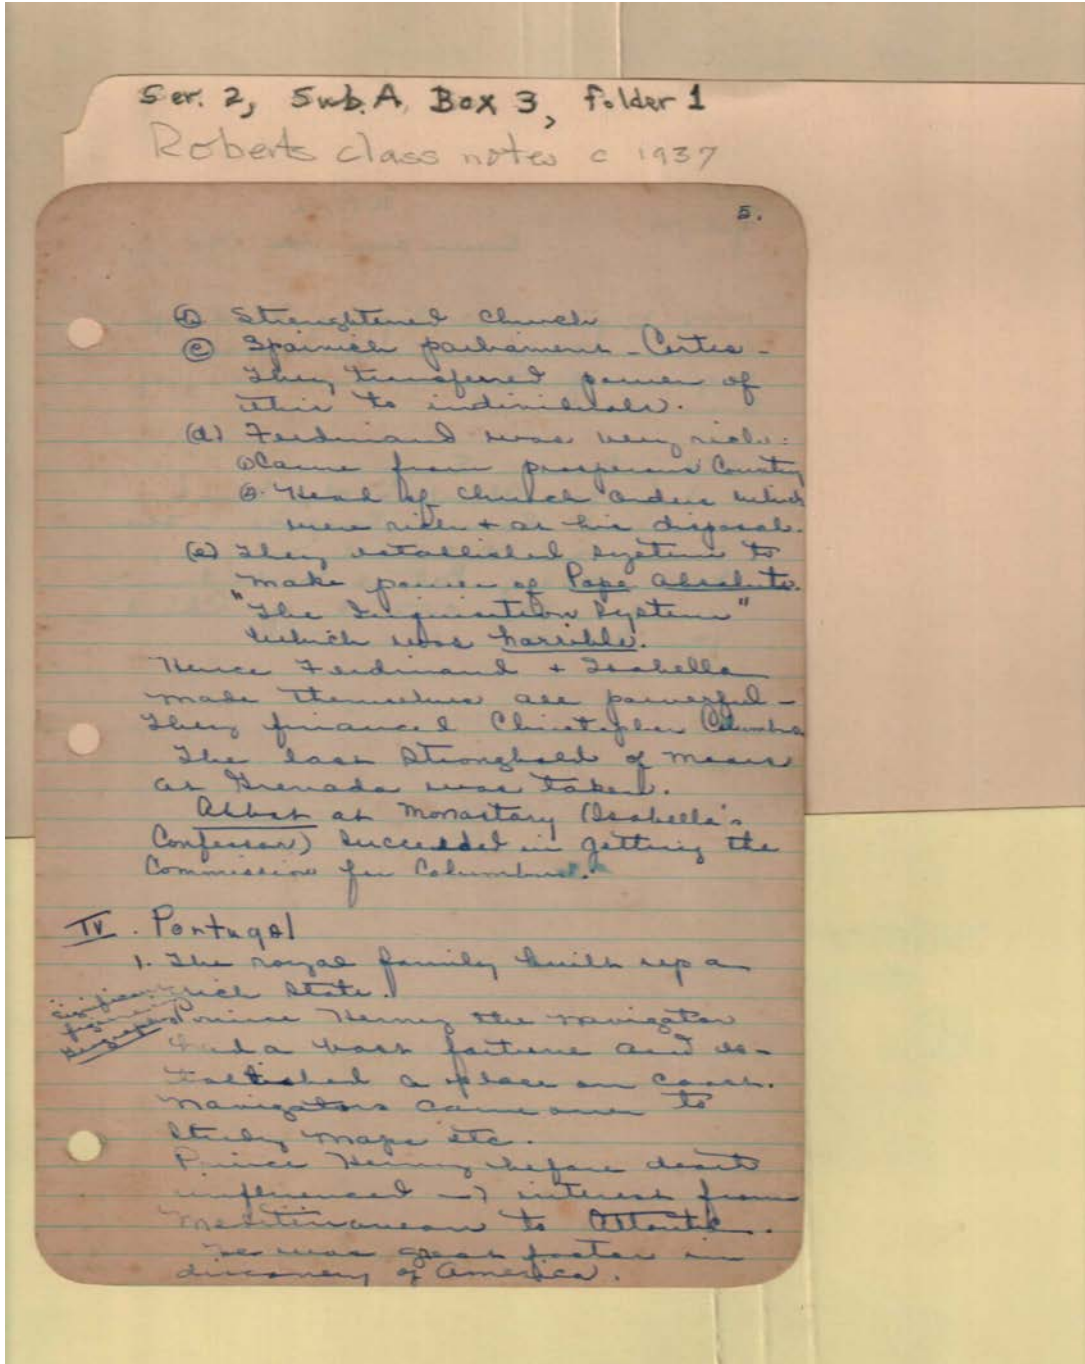 Ser. 2, Sub. A, Box 3, folder 1
Roberts class notes c 1937
5.
(b) Strenghtened Church
(c) Spainish parliament - Cortes -
They transfered power of
this to individuals.
(d) Ferdinand was very rich:
① Came from prosperous County
②. Head of Church Orders which
were rich + at his disposal.
(e) They established system to
make power of Pope Absolute.
"The Inquisition System"
which was horrible.
Hence Ferdinand + Isabella
made themselves all powerful -
They financed Christopher Columbus
The last Stronghold of Moors
at Grenada was taken.
Abbot at Monastary (Isabella's
Confessor) succeeded in getting the
Commission for Columbus.
IV. Portugal
1. The royal family built up a
rich State.
significant
figure in
Geography
Prince Henry the navigator
had a vast fortune and es-
tablished a place on coast.
Navigators came over to
Study maps etc.
Prince Henry before death
influenced → interest from
Mediterranean to Atlantic.
He was great factor in
discovery of America.